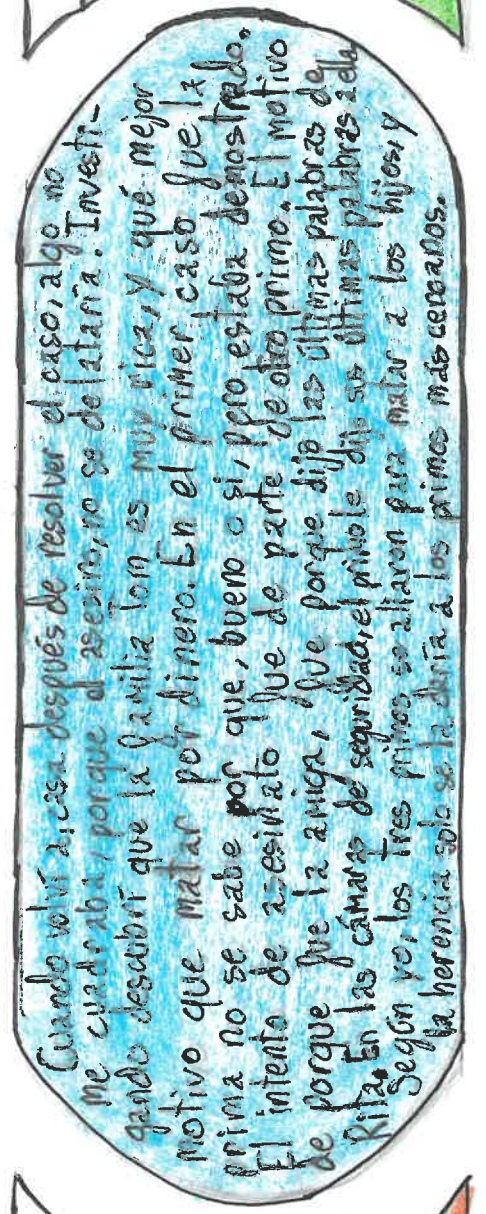 Cuando volví a casa después de resolver el caso, algo no
me cuadraba, porque el asesino, no se delataría. Investi-
gando descubrí que la familia Tom es muy rica, y qué mejor
motivo que matar por dinero. En el primer caso fue la
prima no se sabe por que, bueno o si, pero estaba demostrado.
El intento de asesinato fue de parte de otro primo. El motivo
de porque fue la amiga, fue porque dijo las últimas palabras de
Rita. En las cámaras de seguridad, el primo le dijo sus últimas palabras a ella
Según yo, los tres primos se aliaron para matar a los hijos, y
la herencia solo se la daría a los primos más cercanos.